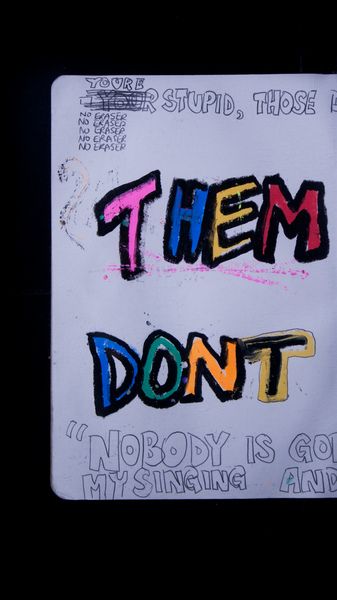 YOURE
YOUR STUPID, THOSE
NO ERASER
NO ERASER
NO ERASER
NO ERASER
NO ERASER
THEM
DONT
"NOBODY IS GO
MY SINGING AND